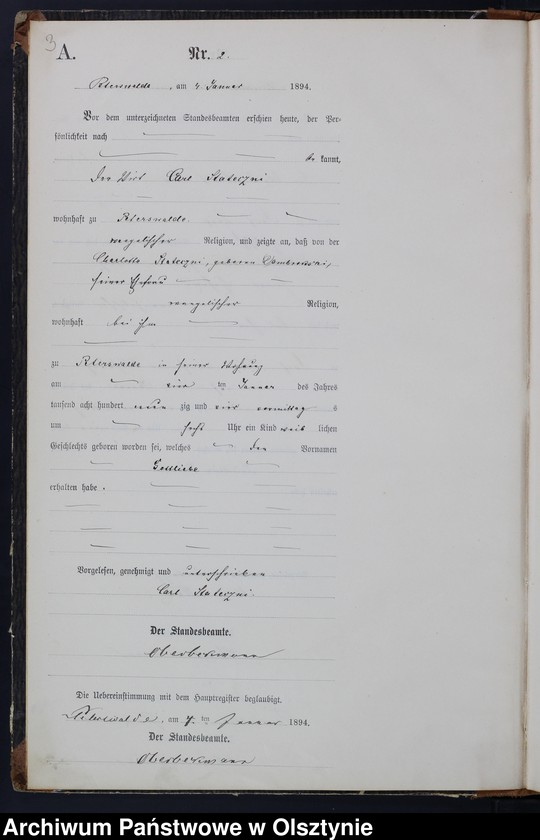 3
A. Nr. 2.
, am 4 Januar 1894.
Vor dem unterzeichneten Standesbeamten erschien heute, der Per-
sönlichkeit nach
be kannt,
der Wirt Carl
wohnhaft zu
evangelischer Religion, und zeigte an, daß von der
Charlotte geborenen
seiner Ehefrau
evangelischer Religion,
wohnhaft bei ihm
zu in seiner Wohnung
am vier ten Januar des Jahres
tausend acht hundert neun zig und vier vormittag s
um sechs Uhr ein Kind weib lichen
Geschlechts geboren worden sei, welches den Vornamen
Gottliebe
erhalten habe.
Vorgelesen, genehmigt und unterschrieben
Carl
Der Standesbeamte.
Die Uebereinstimmung mit dem Hauptregister beglaubigt.
, am ten Januar 1894.
Der Standesbeamte.
Archiwum Państwowe w Olsztynie